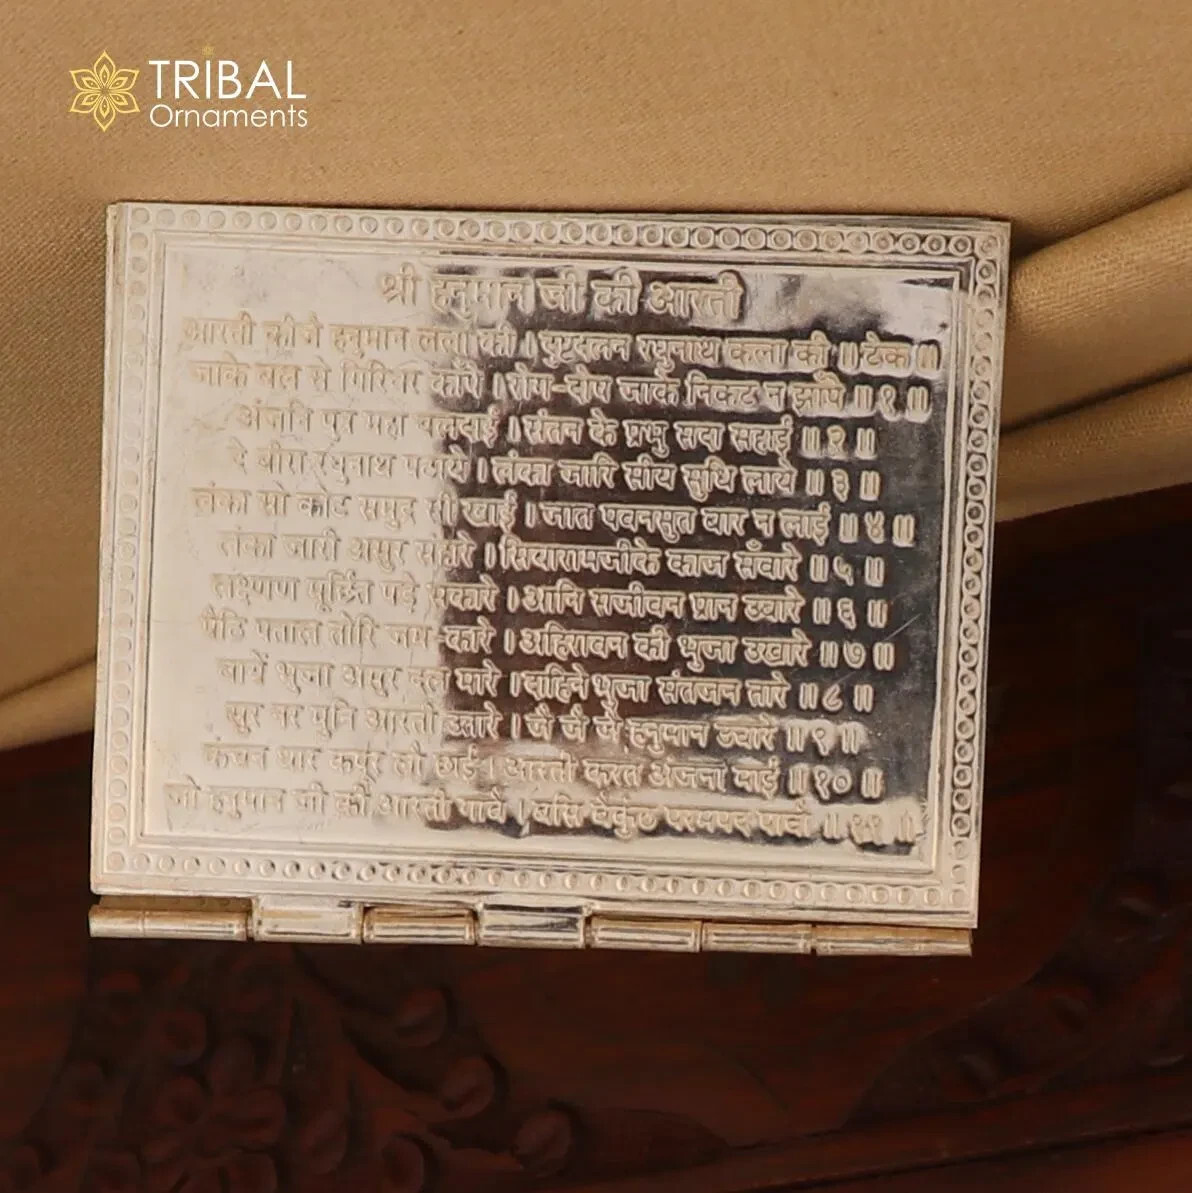 TRIBAL
Ornaments
श्री हनुमान जी की आरती
आरती कीजै हनुमान लला की । दुष्टदलन रघुनाथ कला की ॥ टेक ॥
जाके बल से गिरिवर काँपै । रोग-दोष जाके निकट न झाँपै ॥ १ ॥
अंजनि पुत्र महा बलदाई । संतन के प्रभु सदा सहाई ॥ २ ॥
दे बीरा रघुनाथ पठाये । लंका जारि सीय सुधि लाये ॥ ३ ॥
लंका सो कोट समुद्र सी खाई । जात पवनसुत बार न लाई ॥ ४ ॥
लंका जारी असुर सहारे । सियारामजीके काज सँवारे ॥ ५ ॥
लक्ष्मण मूर्छित पड़े सकारे । आनि सजीवन प्रान उबारे ॥ ६ ॥
पैठि पताल तोरि जम-कारे । अहिरावन की भुजा उखारे ॥ ७ ॥
बायें भुजा असुर दल मारे । दाहिने भुजा संतजन तारे ॥ ८ ॥
सुर नर मुनि आरती उतारे । जै जै जै हनुमान उचारे ॥ ९ ॥
कंचन थार कपूर लौ छाई । आरती करत अंजना माई ॥ १० ॥
जो हनुमान जी की आरती गावै । बसि बैकुंठ परमपद पावै ॥ ११ ॥